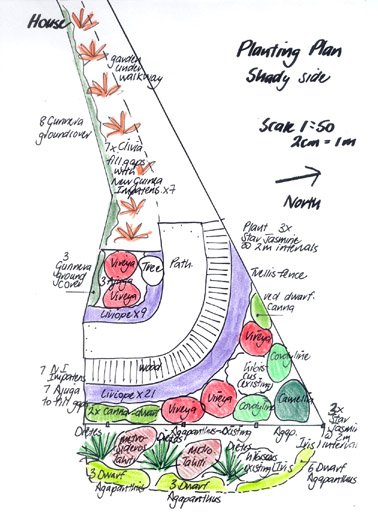 House
Planting Plan
Shady side
garden
under
walkway
Scale 1:50
2cm = 1m
8 Gunnera
groundcover
7 x Clivia
fill gaps
with
New Guinea
Impatiens x7
North
Plant 3x
Star Jasmine
@ 2m intervals
Path
Trellis fence
3
Gunnera
ground
cover
Vireya
Tree
3 Ajuga
Vireya
Liriope x 9
red dwarf
Canna
Vireya
Cordyline
Hibis
cus
(existing)
wood
7 N.I
Impatiens
7 Ajuga
to fill gaps
Liriope x 21
Vireya
Camellia
2x Canna-dwarf
Vireya
Cordyline
3x
Star
Jasmine
@ 2m
intervals
Dietes
Agapanthus-existing
Agap.
Metro-
sideros
Tahiti
Dietes
Metro
Tahiti
Dietes
Hibiscus
existing
Iris
Iris
3 Dwarf
Agapanthus
3 Dwarf
Agapanthus
6 Dwarf
Agapanthus